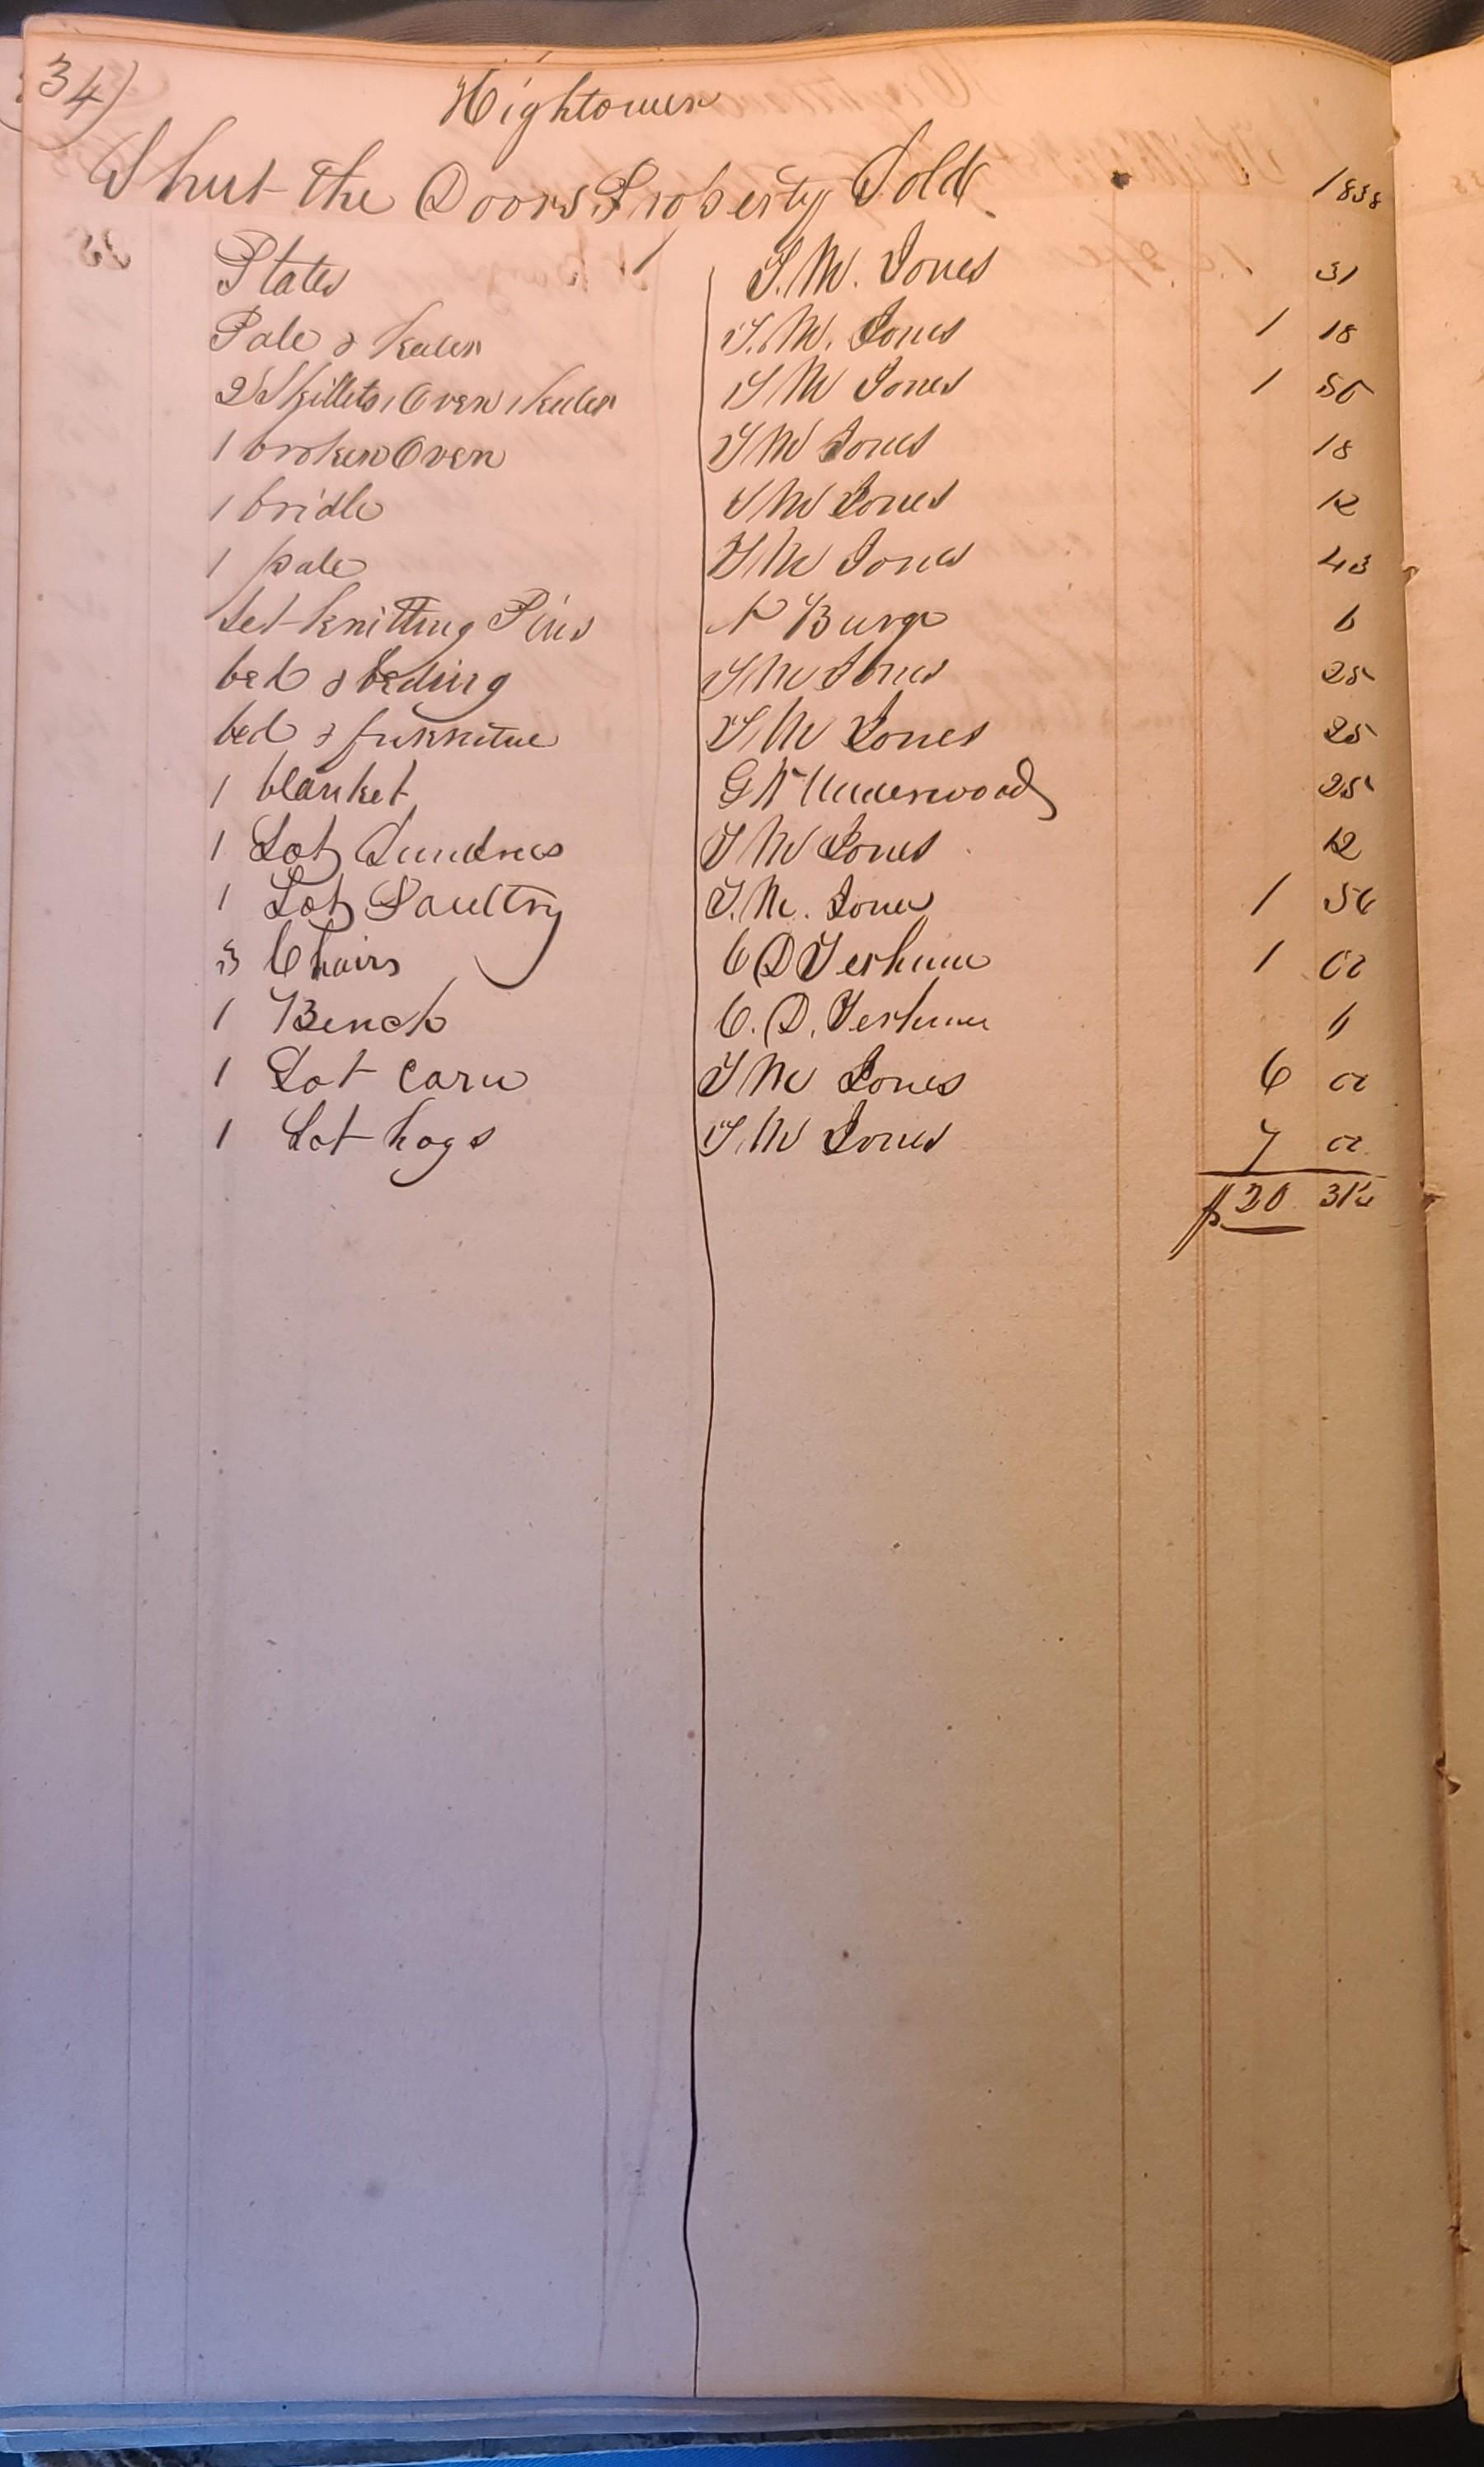 34)
Hightower
Shut the Doors Property Sold 1838
Plates S. M. Jones 31
Pale & keeler S. M. Jones 1 18
2 Skillets 1 Oven 1 keeler S M Jones 1 50
1 broken Oven S M Jones 18
1 bridle S M Jones 12
1 pale S M Jones 43
Set knitting Pins N Burge 6
bed & beding S M Jones 25
bed & furnitue S M Jones 25
1 blanket G W Underwood 25
1 Lot Sundries S M Jones 12
1 Lot Paultry S. M. Jones 1 56
3 Chairs C D Terhune 1 00
1 Bench C. D. Terhune 6
1 Lot Corn S M Jones 6 00
1 Lot hogs S M Jones 7 00
$20 31¼